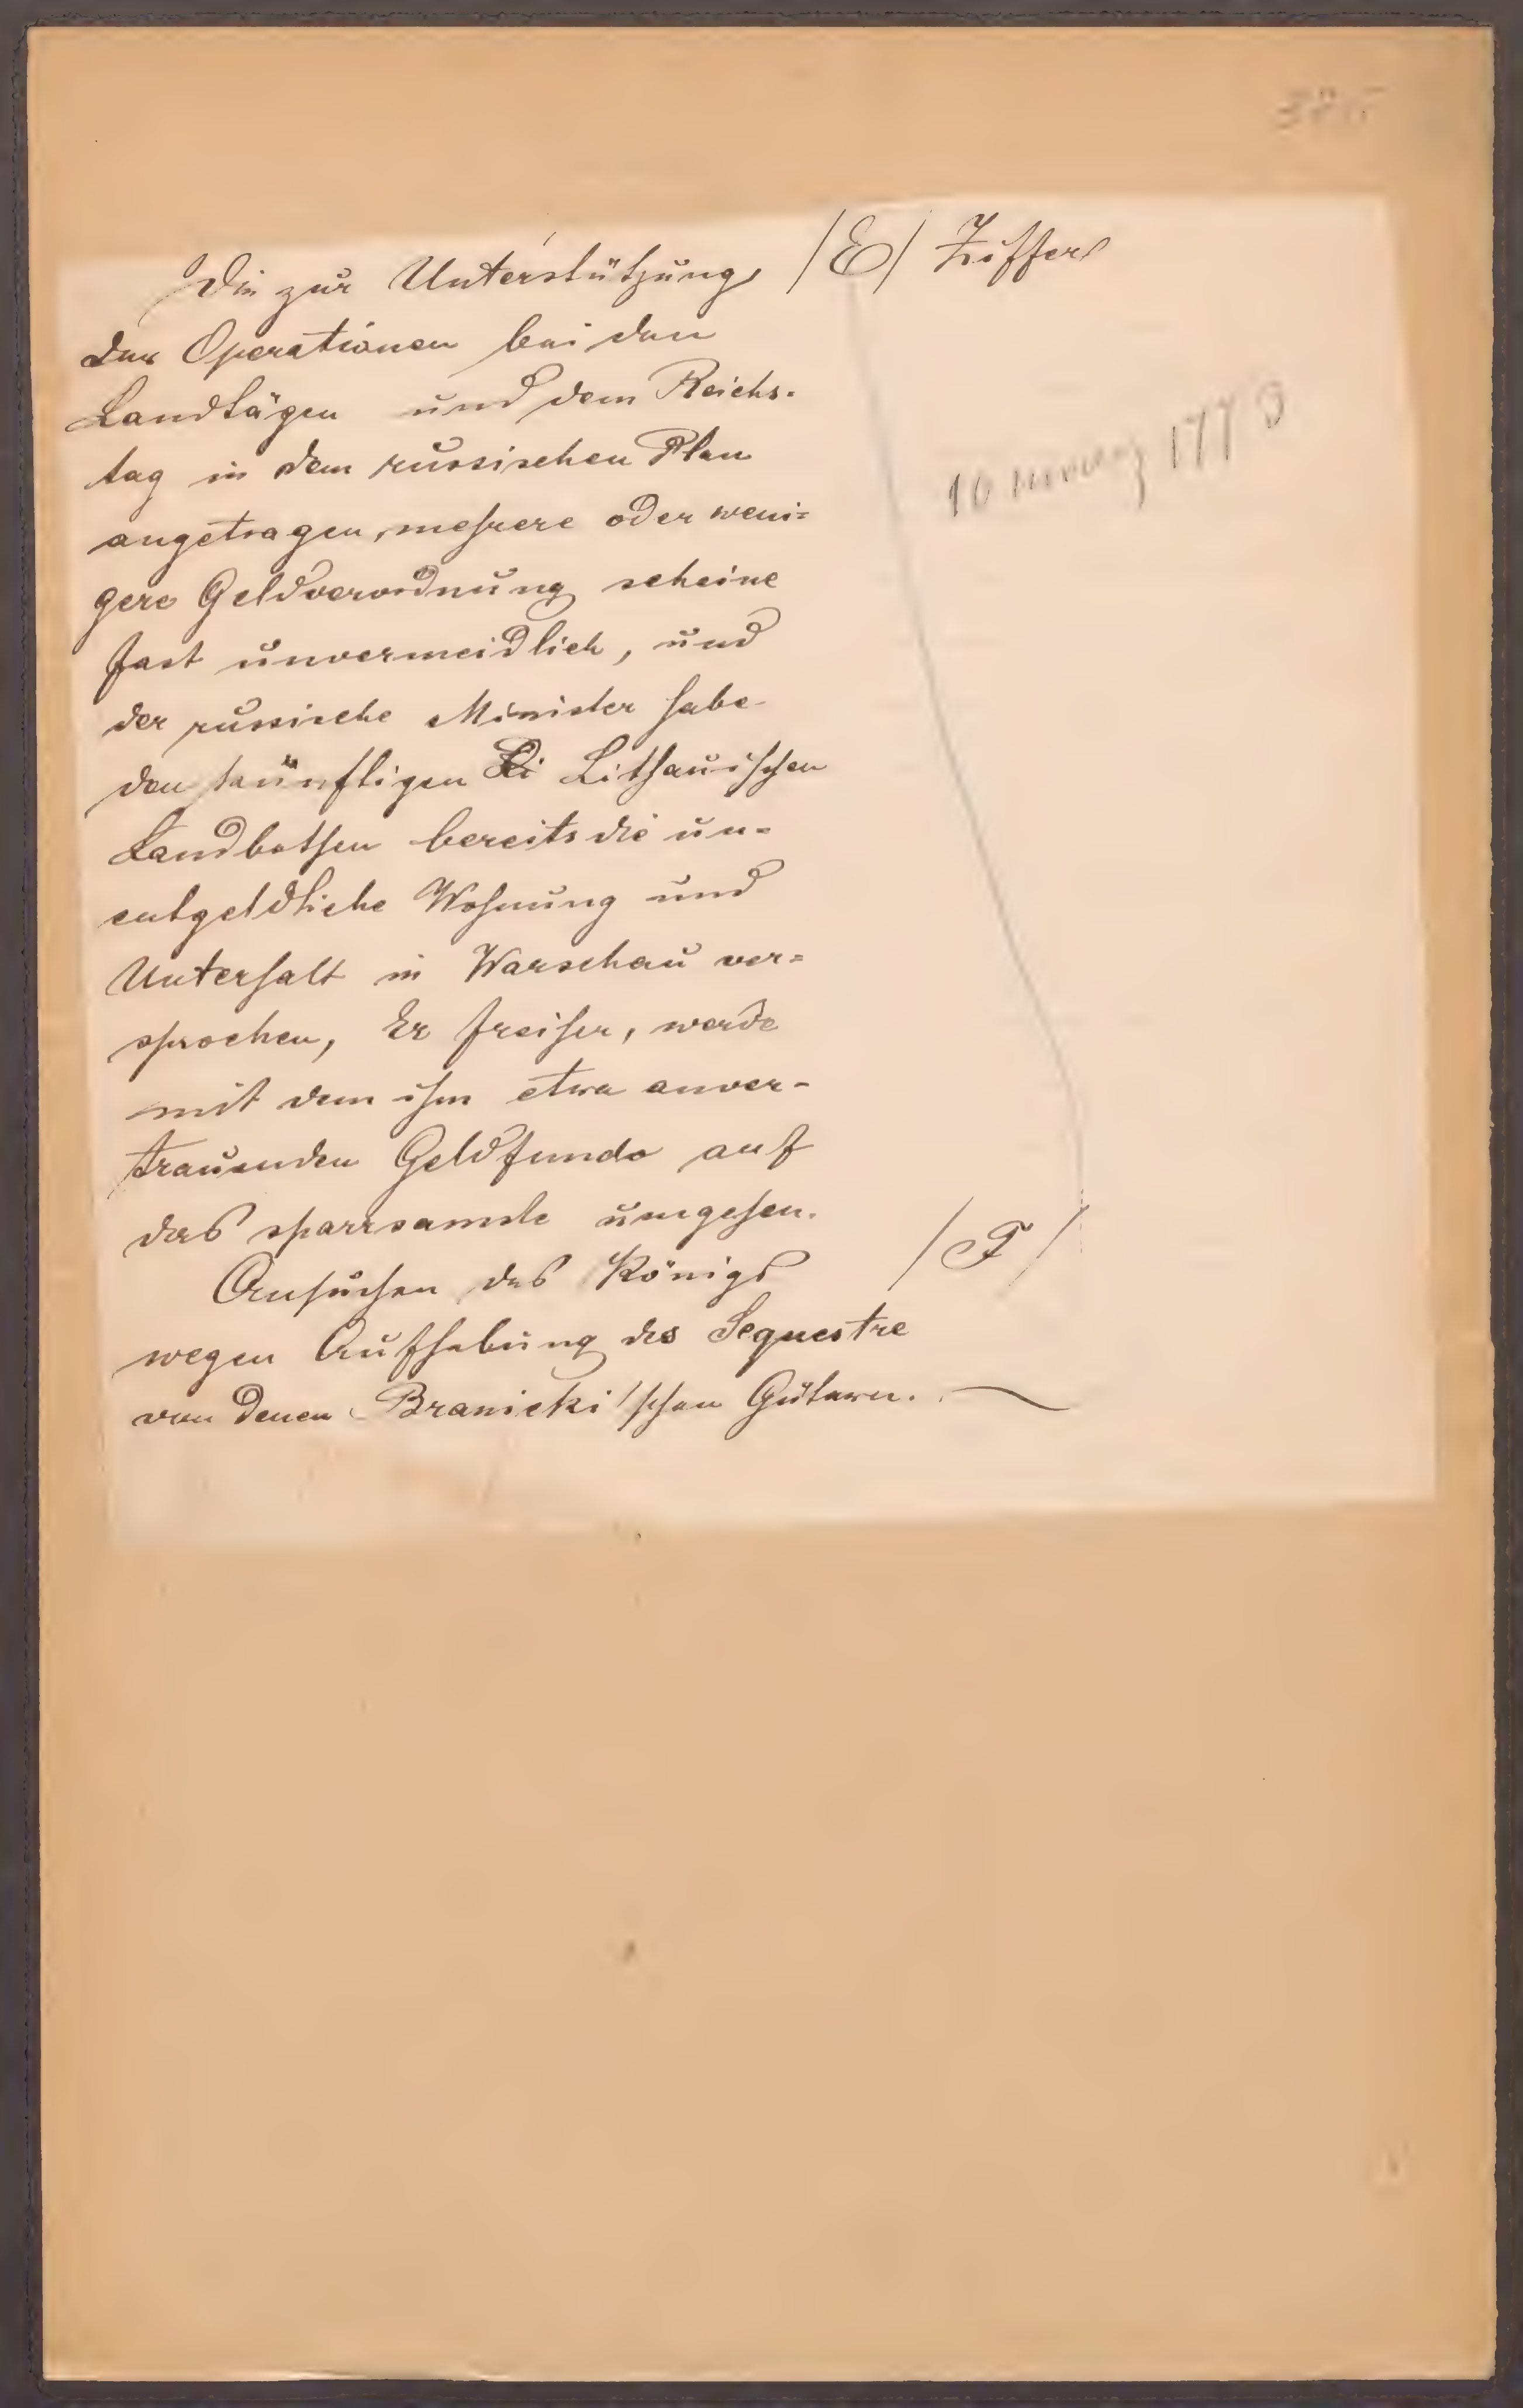 Die zur Unterstützung /E/ Ziffer
der Operationen bei den
Landtägen und dem Reichs-
tag in dem russischen Plan
angetragen, mehrere oder weni=
gere Geldverordnung scheine
fast unvermeidlich, und
der russische Minister habe
den künftigen Li Lithauischen
Landbothen bereits die un=
entgeldliche Wohnung und
Unterhalt in Warschau ver=
sprochen, Er freiher, werde
mit dem ihm etwa anver-
trauenden Geldfundo auf
das sparrsamste umgehen.
Ansuchen des Königs /F/
wegen Aufhebung des Sequestre
von denen Branicki'schen Gütern.
10 177